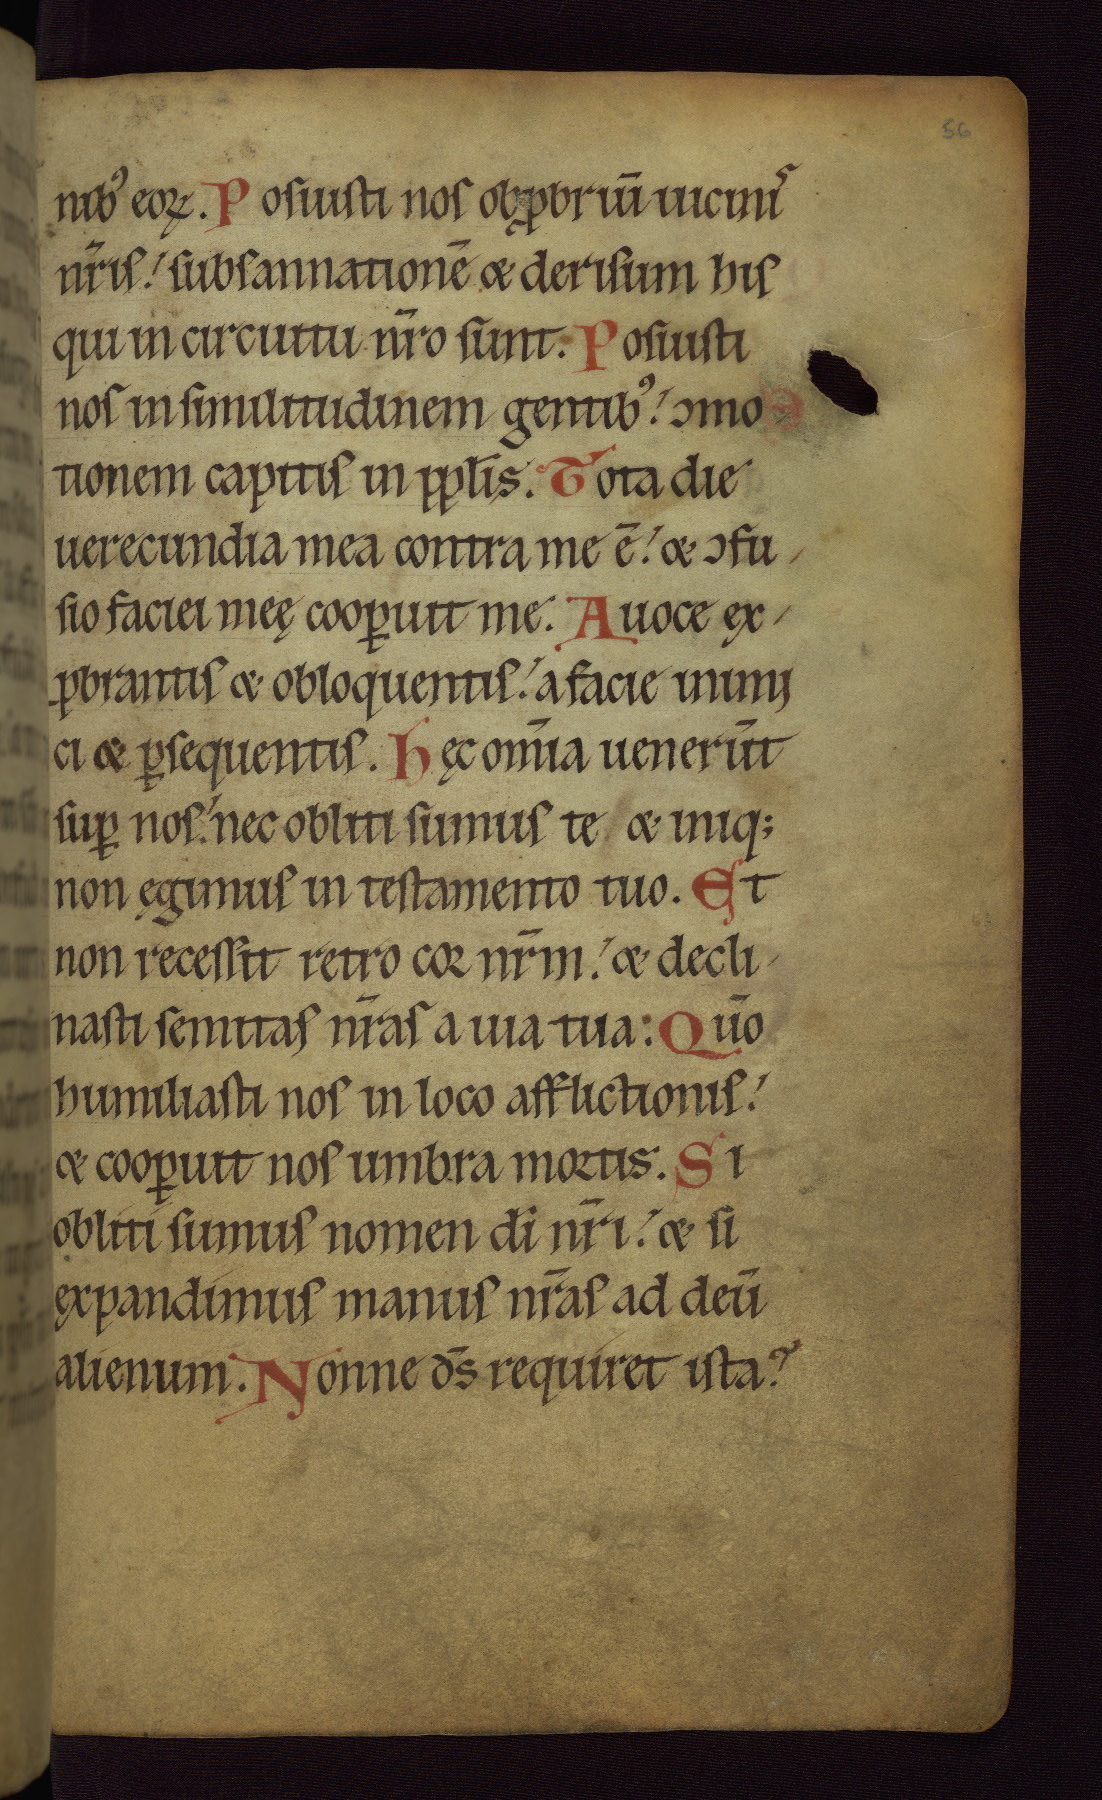 56
nibꝰ eoꝝ. Posuisti nos obꝓbriū uicinis
nr̄is! subsannationē & derisum his
qui in circuitu nr̄o sunt. Posuisti
nos in similitudinem gentibꝰ! ↄmo
tionem capitis in ppl̄is. Tota die
uerecundia mea contra me ē! & ↄfu-
sio faciei meę cooꝑuit me. A uoce ex-
ꝓbrantis & obloquentis! a facie inimi
ci & ꝑsequentis. Hęc om̄ia uenerūt
suꝑ nos! nec obliti sumus te & iniq;
non ęgimus in testamento tuo. Et
non recessit retro cor nr̄m! & decli-
nasti semitas nr̄as a uia tua: Qūo
humiliasti nos in loco afflictionis!
& cooꝑuit nos umbra mortis. Si
obliti sumus nomen dī nr̄i! & si
expandimus manus nr̄as ad deū
alienum. Nonne ds̄ requiret ista?